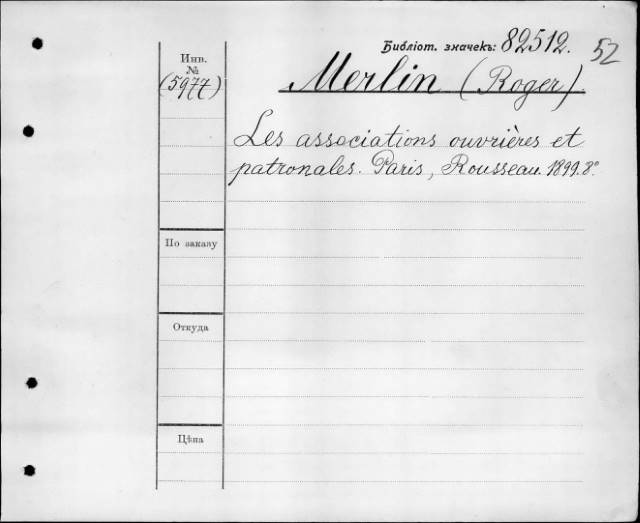 Библіот. значекъ: 82512. 52
Инв.
№
(5977)
Merlin (Roger).
Les associations ouvrières et
patronales. Paris, Rousseau. 1899. 8º.
По заказу
Откуда
Цѣна